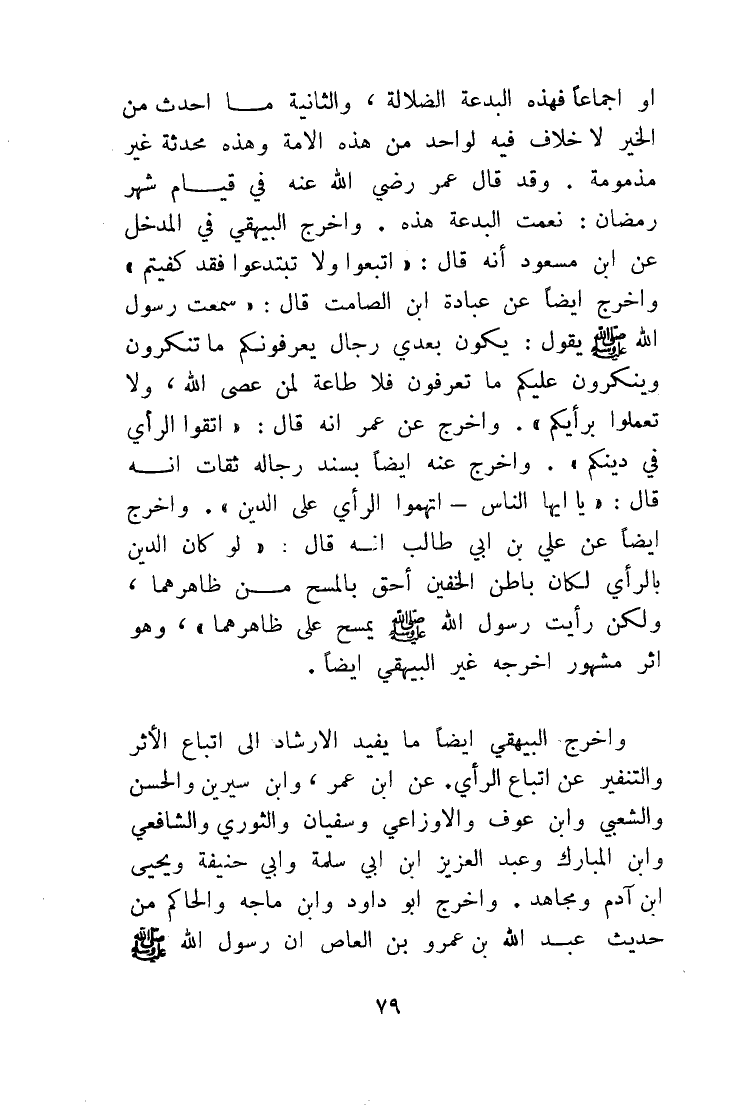 او اجماعاً فهذه البدعة الضلالة ، والثانية مـــا احدث من
الخير لا خلاف فيه لواحد من هذه الامة وهذه محدثة غير
مذمومة . وقد قال عمر رضي الله عنه في قيـــام شهر
رمضان : نعمت البدعة هذه . واخرج البيهقي في المدخل
عن ابن مسعود أنه قال : « اتبعوا ولا تبتدعوا فقد كفيتم »
واخرج ايضاً عن عبادة ابن الصامت قال : « سمعت رسول
الله ﷺ يقول : يكون بعدي رجال يعرفونكم ما تنكرون
وينكرون عليكم ما تعرفون فلا طاعة لمن عصى الله ، ولا
تعملوا برأيكم » . واخرج عن عمر انه قال : « اتقوا الرأي
في دينكم » . واخرج عنه ايضاً بسند رجاله ثقات انـــه
قال : « يا ايها الناس – اتهموا الرأي على الدين » . واخرج
ايضاً عن علي بن ابي طالب انـه قال : « لو كان الدين
بالرأي لكان باطن الخفين أحق بالمسح مـــن ظاهرهما ،
ولكن رأيت رسول الله ﷺ يمسح على ظاهرهما » ، وهو
اثر مشهور اخرجه غير البيهقي ايضاً .
واخرج البيهقي ايضاً ما يفيد الارشاد الى اتباع الأثر
والتنفير عن اتباع الرأي . عن ابن عمر ، وابن سيرين والحسن
والشعبي وابن عوف والاوزاعي وسفيان والثوري والشافعي
وابن المبارك وعبد العزيز ابن ابي سلمة وابي حنيفة ويحيى
ابن آدم ومجاهد . واخرج ابو داود وابن ماجه والحاكم من
حديث عبـد الله بن عمرو بن العاص ان رسول الله ﷺ
٧٩